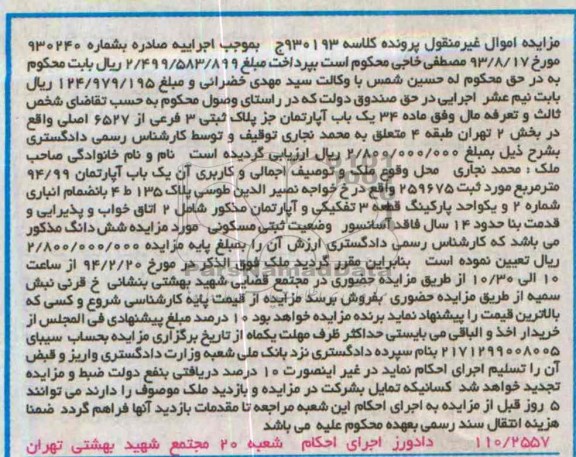 مزایده اموال غیرمنقول پرونده کلاسه 930193ج بموجب اجراییه صادره بشماره 930240
مورخ 93/8/17 مصطفی خاجی محکوم است بپرداخت مبلغ 2/499/583/899 ریال بابت محکوم
به در حق محکوم له حسین شمس با وکالت سید مهدی خضرائی و مبلغ 124/979/195 ریال
بابت نیم عشر اجرایی در حق صندوق دولت که در راستای وصول محکوم به حسب تقاضای شخص
ثالث و تعرفه مال وفق ماده 34 یک باب آپارتمان جز پلاک ثبتی 3 فرعی از 6527 اصلی واقع
در بخش 2 تهران طبقه 4 متعلق به محمد نجاری توقیف و توسط کارشناس رسمی دادگستری
بشرح ذیل بمبلغ 2/800/000/000 ریال ارزیابی گردیده است نام و نام خانوادگی صاحب
ملک : محمد نجاری محل وقوع ملک و توصیف اجمالی و کاربری آن یک باب آپارتمان 94/99
مترمربع مورد ثبت 259675 واقع در خ خواجه نصیر الدین طوسی پلاک 135 ط 4 بانضمام انباری
شماره 2 و یکواحد پارکینگ قطعه 3 تفکیکی و آپارتمان مذکور شامل 2 اتاق خواب و پذیرایی و
قدمت بنا حدود 14 سال فاقد آسانسور وضعیت ثبتی مسکونی مورد مزایده شش دانگ مذکور
می باشد که کارشناس رسمی دادگستری ارزش آن را بمبلغ پایه مزایده 2/800/000/000
ریال تعیین نموده است بنابراین مقرر گردید ملک فوق الذکر در مورخ 94/2/20 از ساعت
10 الی 10/30 از طریق مزایده حضوری در مجتمع قضایی شهید بهشتی بنشانی خ قرنی نبش
سمیه از طریق مزایده حضوری بفروش برسد مزایده از قیمت پایه کارشناسی شروع و کسی که
بالاترین قیمت را پیشنهاد نماید برنده مزایده خواهد بود 10 درصد مبلغ پیشنهادی فی المجلس از
خریدار اخذ و الباقی می بایستی حداکثر ظرف مهلت یکماه از تاریخ برگزاری مزایده بحساب سیبای
2171299008005 بنام سپرده دادگستری نزد بانک ملی شعبه وزارت دادگستری واریز و قبض
آن را تسلیم اجرای احکام نماید در غیر اینصورت 10 درصد دریافتی بنفع دولت ضبط و مزایده
تجدید خواهد شد کسانیکه تمایل بشرکت در مزایده و بازدید ملک موصوف را دارند می توانند
5 روز قبل از مزایده به اجرای احکام این شعبه مراجعه تا مقدمات بازدید آنها فراهم گردد ضمنا
هزینه انتقال سند رسمی بعهده محکوم علیه می باشد
110/2557 دادورز اجرای احکام شعبه 20 مجتمع شهید بهشتی تهران